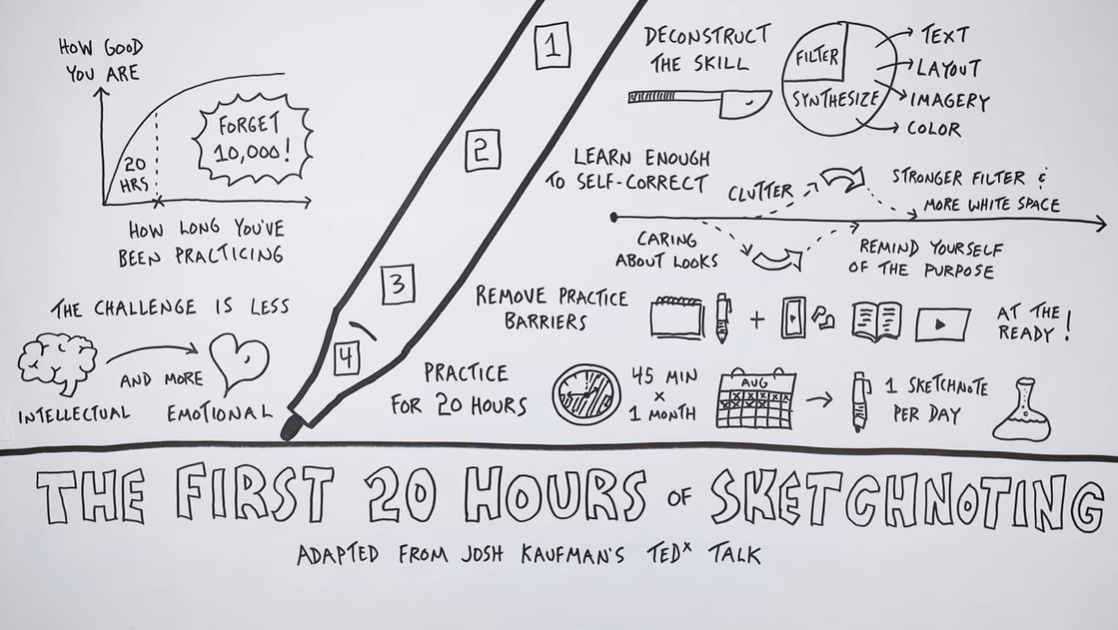 HOW GOOD
YOU ARE
20
HRS
FORGET
10,000!
HOW LONG YOU'VE
BEEN PRACTICING
THE CHALLENGE IS LESS
INTELLECTUAL
AND MORE
EMOTIONAL
1
DECONSTRUCT
THE SKILL
FILTER
SYNTHESIZE
TEXT
LAYOUT
IMAGERY
COLOR
2
LEARN ENOUGH
TO SELF-CORRECT
CLUTTER
STRONGER FILTER &
MORE WHITE SPACE
CARING
ABOUT LOOKS
REMIND YOURSELF
OF THE PURPOSE
3
REMOVE PRACTICE
BARRIERS
+
AT THE
READY!
4
PRACTICE
FOR 20 HOURS
45 MIN
x
1 MONTH
AUG
1 SKETCHNOTE
PER DAY
THE FIRST 20 HOURS OF SKETCHNOTING
ADAPTED FROM JOSH KAUFMAN'S TEDx TALK